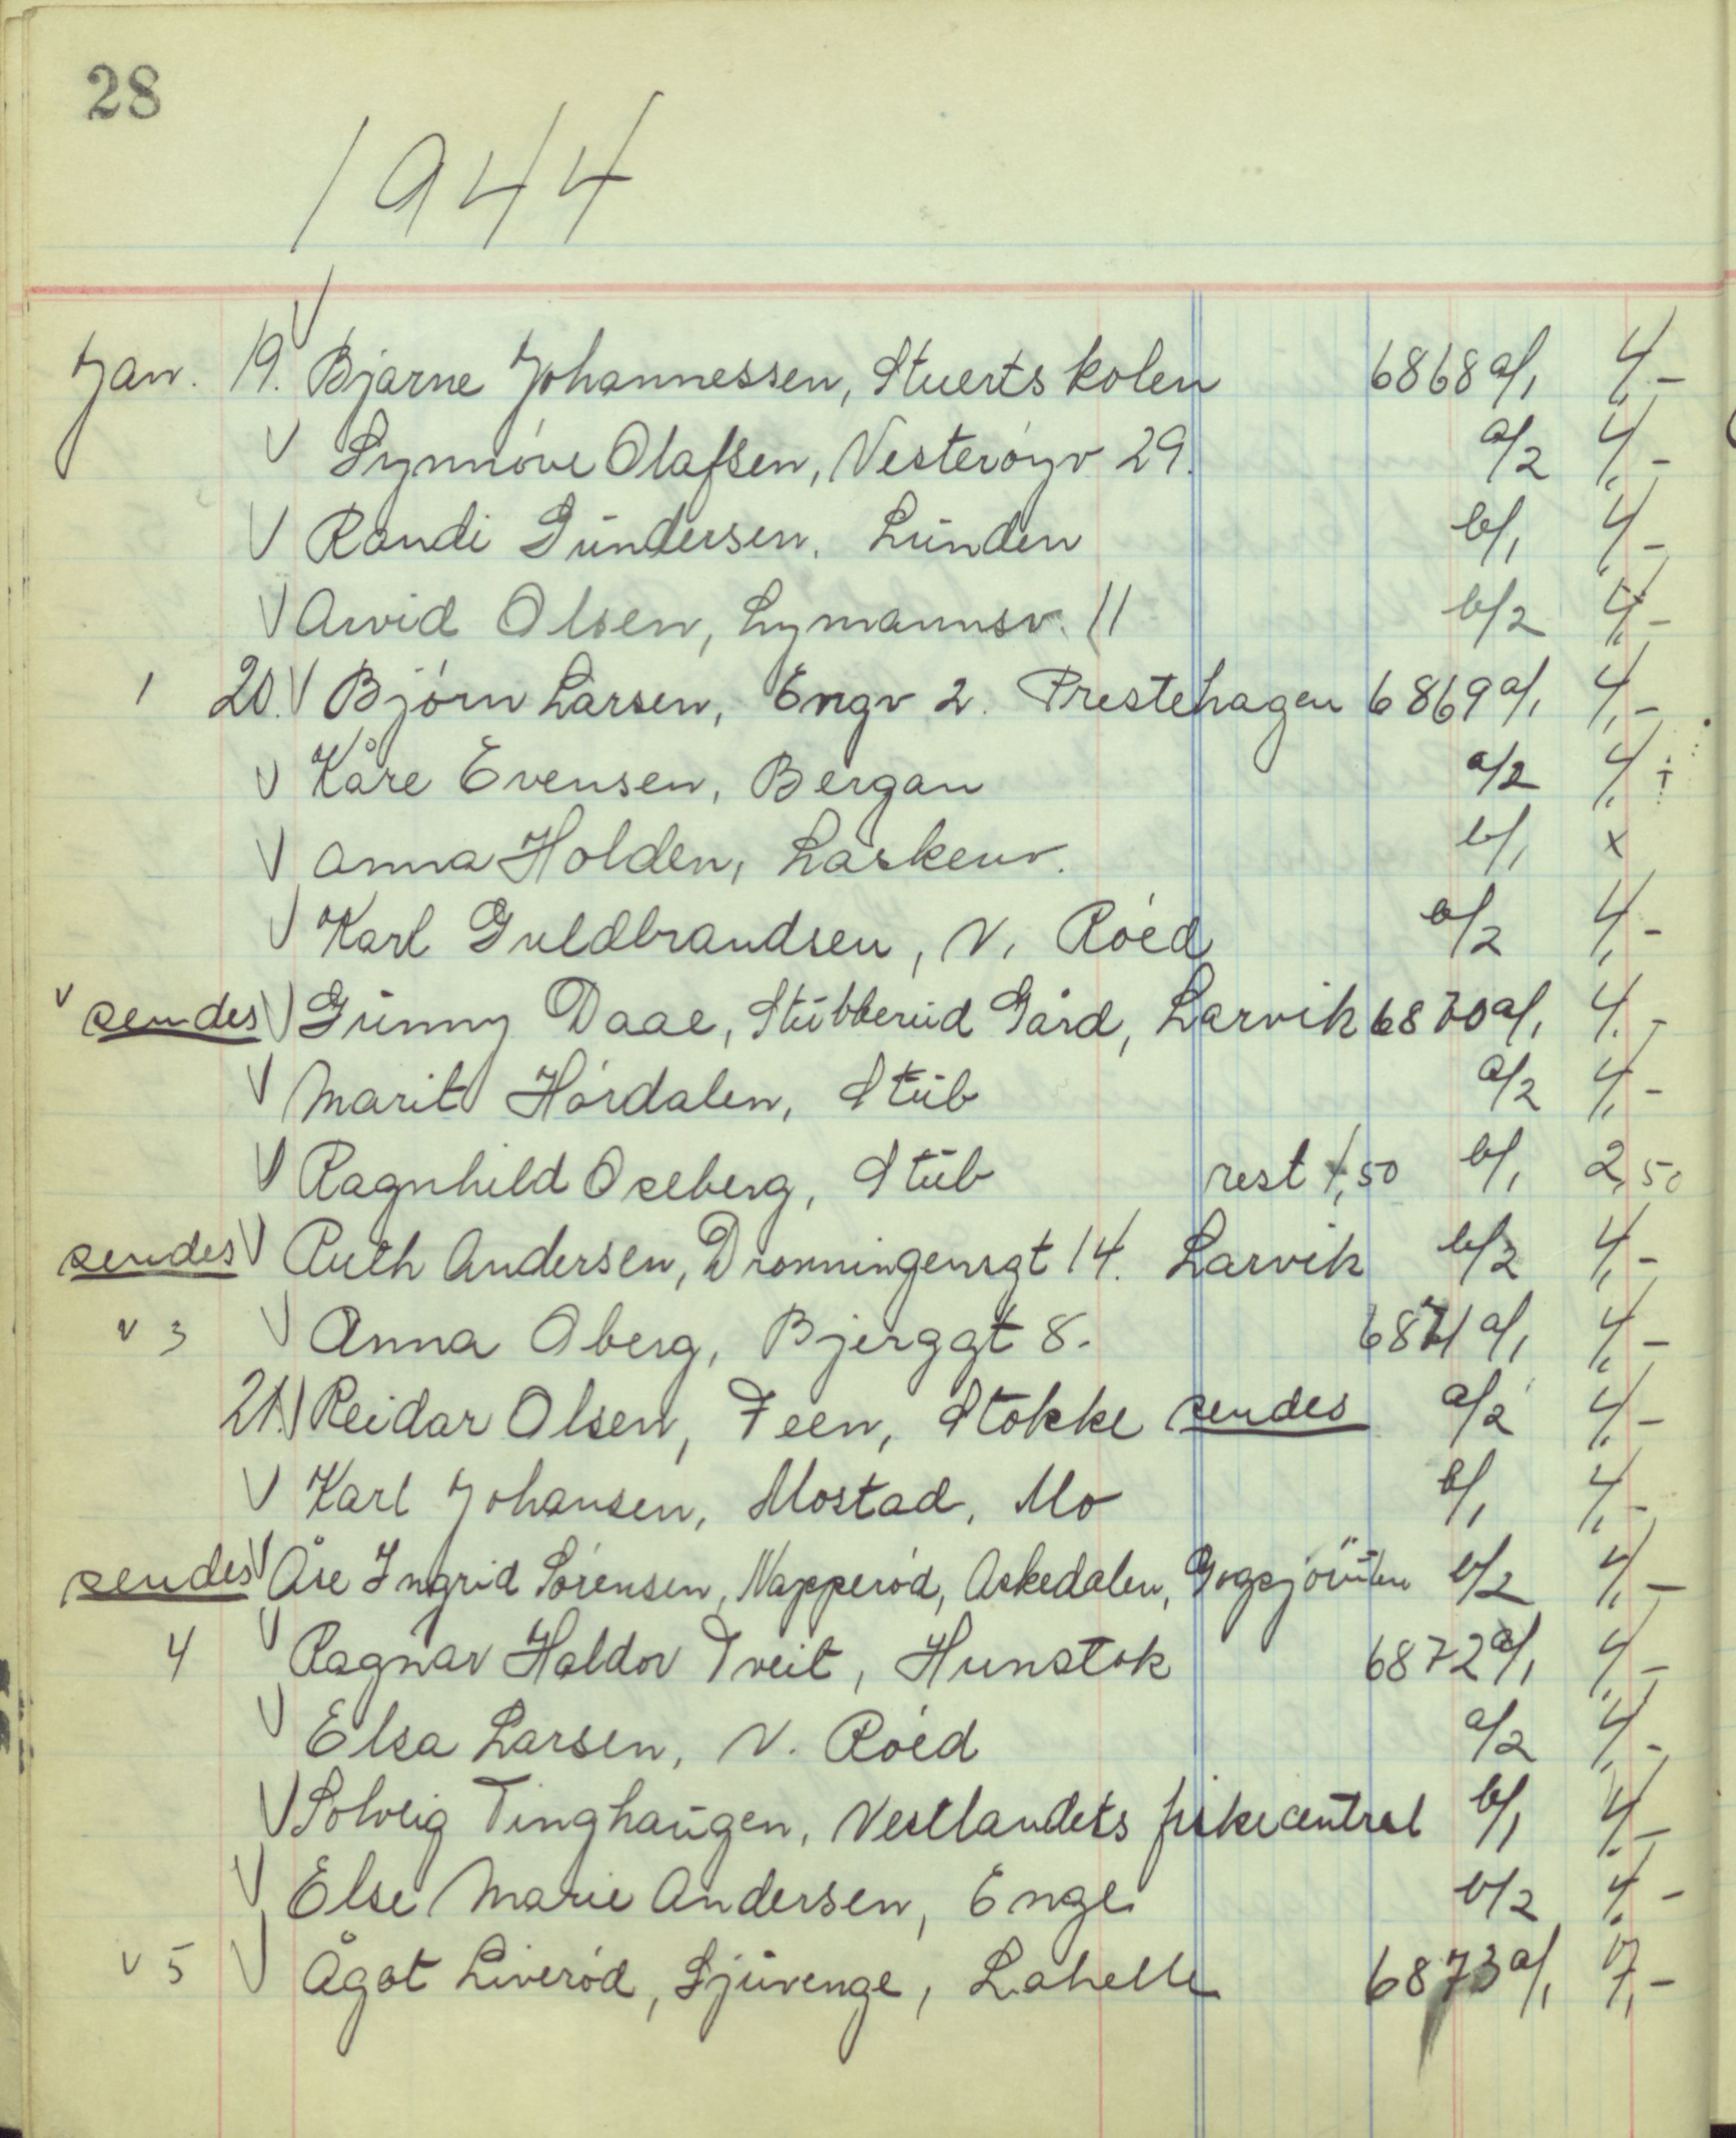 28
1944
Jan. 19. Bjarne Johannessen, Stuertskolen 6868 a/1 4,-
Synnöve Olafsen, Vesteröyv 29. a/2 4,-
Randi Gundersen, Lunden b/1 4,-
Arvid Olsen, Lymannsv. 11 b/2 4,-
1 20. Björn Larsen, Engv 2. Prestehagen 6869 a/1 4,-
Kåre Evensen, Bergan a/2 4,-
Anna Holden, Laskenv. b/1 x
Karl Guldbrandsen, N. Röed b/2 4,-
v sendes Gunny Daae, Stubberud Gård, Larvik 6870 a/1 4.-
Marit Hördalen, Stub a/2 4,-
Ragnhild Oseberg, Stub rest 1,50 b/1 2,50
sendes Ruth Andersen, Dronningensgt 14. Larvik b/2 4,-
v 3 Anna Oberg, Bjerggt 8. 6871 a/1 4,-
21. Reidar Olsen, Feen, Stokke sendes a/2 4,-
Karl Johansen, Mostad, Mo b/1 4,-
sendes Åse Ingrid Sörensen, Napperöd, Askedalen, b/2 4,-
4 Ragnar Haldor Tveit, Hunstok 6872 a/1 4,-
Elsa Larsen, N. Röed a/2 4,-
Solveig Tinghaugen, Vestlandets fiskecentral b/1 4,-
Else Marie Andersen, Enge b/2 4,-
v 5 Ågot Liveröd, Sjuvenge, Lahelle 6873 a/1 7,-